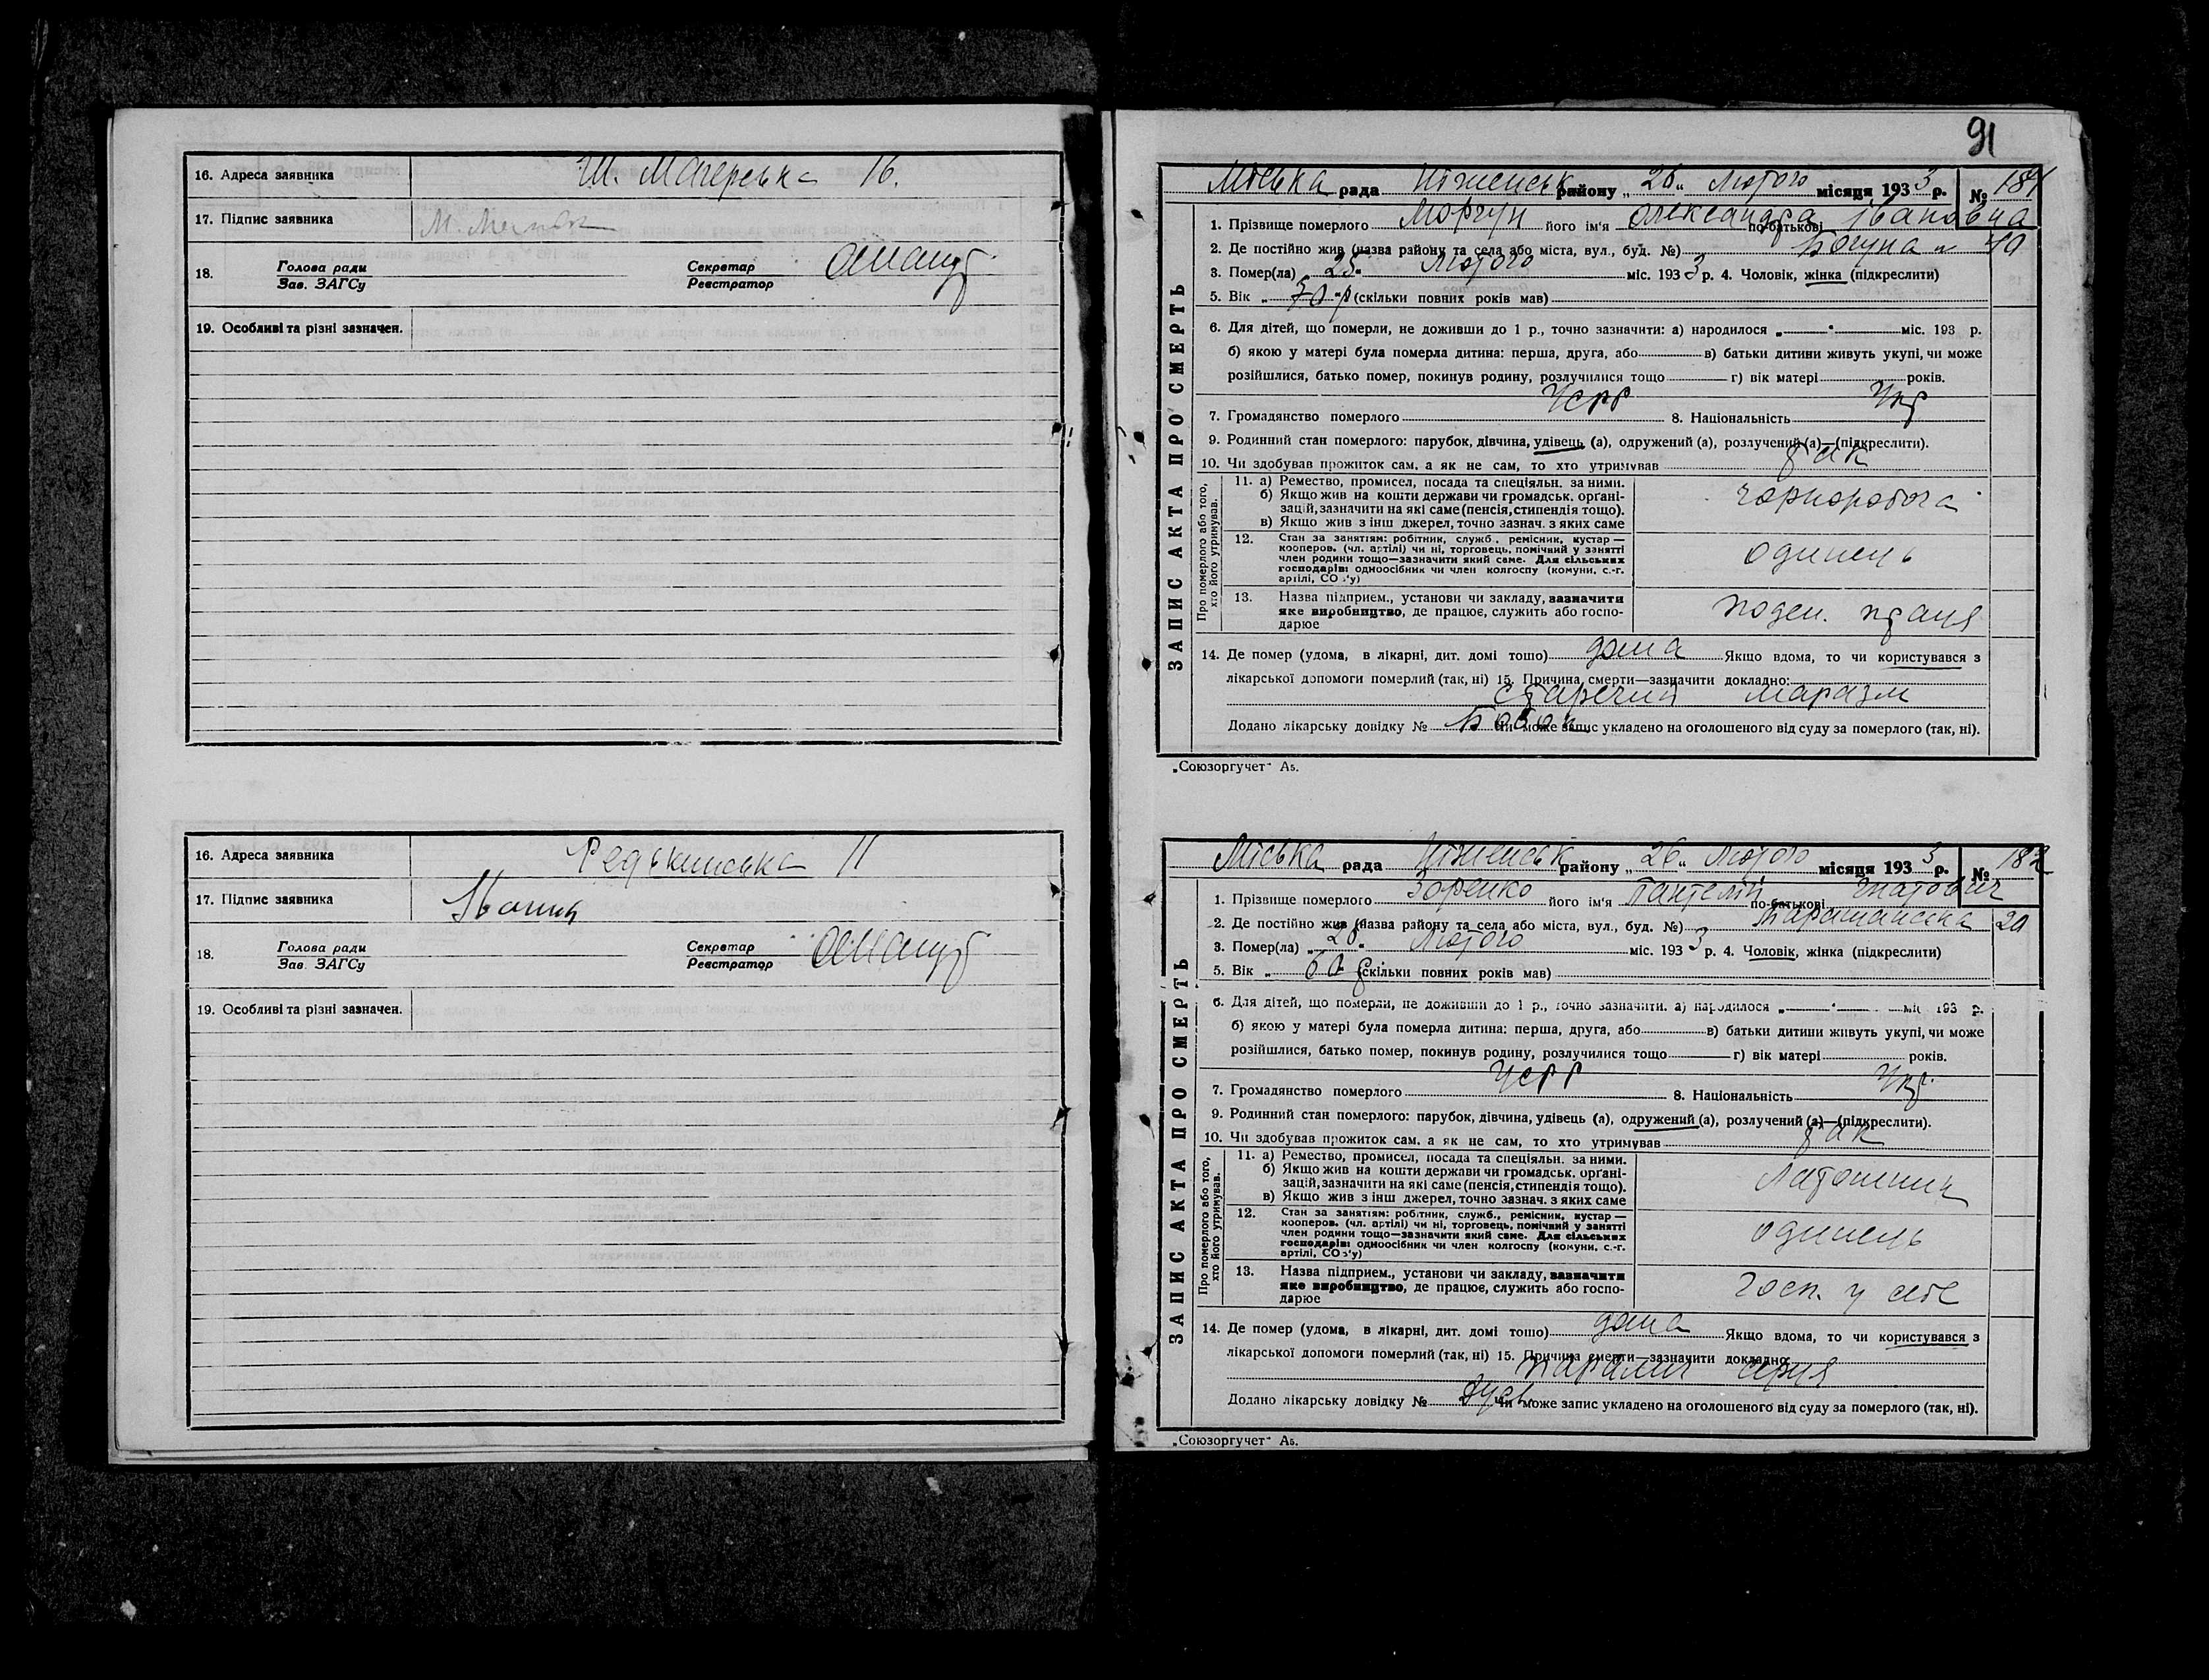 16. Адреса заявника Ш. Магерська 16.
17. Підпис заявника
18. Голова ради Секретар
Зав. ЗАГСу Реєстратор
19. Особливі та різні зазначен.
16. Адреса заявника Редькинська 11
17. Підпис заявника
18. Голова ради Секретар
Зав. ЗАГСу Реєстратор
19. Особливі та різні зазначен.
91
ЗАПИС АКТА ПРО СМЕРТЬ
Міська рада Ніженськ району „26" Лютого місяця 1933 р. № 181
1. Прізвище померлого Моргун його ім'я Олександра по-батькові Івановна
2. Де постійно жив (назва району та села або міста, вул., буд. №) Богуна 40
3. Помер(ла) „25" Лютого міс. 1933 р. 4. Чоловік, жінка (підкреслити)
5. Вік „70" р (скільки повних років мав)
6. Для дітей, що померли, не доживши до 1 р., точно зазначити: а) народилося „ " міс. 193 р.
б) якою у матері була померла дитина: перша, друга, або в) батьки дитини живуть укупі, чи може
розійшлися, батько помер, покинув родину, розлучилися тощо г) вік матері років.
7. Громадянство померлого Усрр 8. Національність Укр
9. Родинний стан померлого: парубок, дівчина, удівець (а), одружений (а), розлучений (а)—(підкреслити).
10. Чи здобував прожиток сам, а як не сам, то хто утримував так
Про померлого або того, хто його утримував.
11. а) Ремество, промисел, посада та спеціяльн. за ними.
б) Якщо жив на кошти держави чи громадськ. орґані-
зацій, зазначити на які саме (пенсія, стипендія тощо).
в) Якщо жив з інш джерел, точно зазнач. з яких саме
чорноробоча
12. Стан за занятіям: робітник, служб., ремісник, кустар—
кооперов. (чл. артілі) чи ні, торговець, помічний у занятті
член родини тощо—зазначити який саме. Для сільських
господарів: одноосібник чи член колгоспу (комуни, с.-г.
артілі, СОЗ'у)
одинець
13. Назва підприєм., установи чи закладу, зазначити
яке виробництво, де працює, служить або госпо-
дарює
поден. праця
14. Де помер (удома, в лікарні, дит. домі тощо) дома Якщо вдома, то чи користувався з
лікарської допомоги померлий (так, ні) 15. Причина смерти—зазначити докладно:
старечий маразм
Додано лікарську довідку № Чи може запис укладено на оголошеного від суду за померлого (так, ні).
„Союзоргучет" А5.
ЗАПИС АКТА ПРО СМЕРТЬ
Міська рада Ніженськ району „26" Лютого місяця 1933 р. № 182
1. Прізвище померлого Зоренко його ім'я Пантелій по-батькові Гнатович
2. Де постійно жив (назва району та села або міста, вул., буд. №) Таращанська 20
3. Помер(ла) „ " Лютого міс. 1933 р. 4. Чоловік, жінка (підкреслити)
5. Вік „60" р (скільки повних років мав)
6. Для дітей, що померли, не доживши до 1 р., точно зазначити: а) народилося „ " міс 193 р.
б) якою у матері була померла дитина: перша, друга, або в) батьки дитини живуть укупі, чи може
розійшлися, батько помер, покинув родину, розлучилися тощо г) вік матері років.
7. Громадянство померлого Усрр 8. Національність Укр.
9. Родинний стан померлого: парубок, дівчина, удівець (а), одружений (а), розлучений (а)—(підкреслити).
10. Чи здобував прожиток сам, а як не сам, то хто утримував так
Про померлого або того, хто його утримував.
11. а) Ремество, промисел, посада та спеціяльн. за ними.
б) Якщо жив на кошти держави чи громадськ. орґані-
зацій, зазначити на які саме (пенсія, стипендія тощо).
в) Якщо жив з інш джерел, точно зазнач. з яких саме
12. Стан за занятіям: робітник, служб., ремісник, кустар—
кооперов. (чл. артілі) чи ні, торговець, помічний у занятті
член родини тощо—зазначити який саме. Для сільських
господарів: одноосібник чи член колгоспу (комуни, с.-г.
артілі, СОЗ'у)
одинець
13. Назва підприєм., установи чи закладу, зазначити
яке виробництво, де працює, служить або госпо-
дарює
госп. у себе
14. Де помер (удома, в лікарні, дит. домі тощо) дома Якщо вдома, то чи користувався з
лікарської допомоги померлий (так, ні) 15. Причина смерти—зазначити докладно:
параліч серця
Додано лікарську довідку № Чи може запис укладено на оголошеного від суду за померлого (так, ні).
„Союзоргучет" А5.